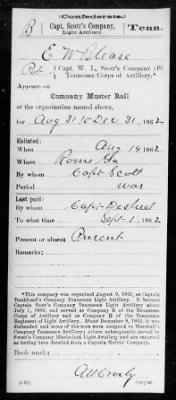 (Confederate.)
B Capt. Scott's Company, Tenn.
Light Artillery.
E W Blease
Pvt., Capt. W. L. Scott's Company (B)
Tennessee Corps of Artillery.*
Appears on
Company Muster Roll
of the organization named above,
for Aug 31 to Dec 31, 1862.
Enlisted:
When Aug 14, 1862.
Where Rome Ga
By whom Capt Scott
Period war
Last paid:
By whom Capt
To what time Sept 1, 1862.
Present or absent Present
Remarks:
*This company was organized August 9, 1862, as Captain
Company Tennessee Light Artillery. It became
Captain Scott's Company Tennessee Light Artillery about
July 1, 1862, and served as Company B of the Tennessee
Corps of Artillery and as Company B of the Tennessee
Regiment of Light Artillery. About December 9, 1863, it was
disbanded and some of the men were assigned to Marshall's
Company Tennessee Artillery; others subsequently served in
Company Mississippi Light Artillery and are reported
as having been detailed from a Captain Company.
Book mark:
(642)
Copyist.